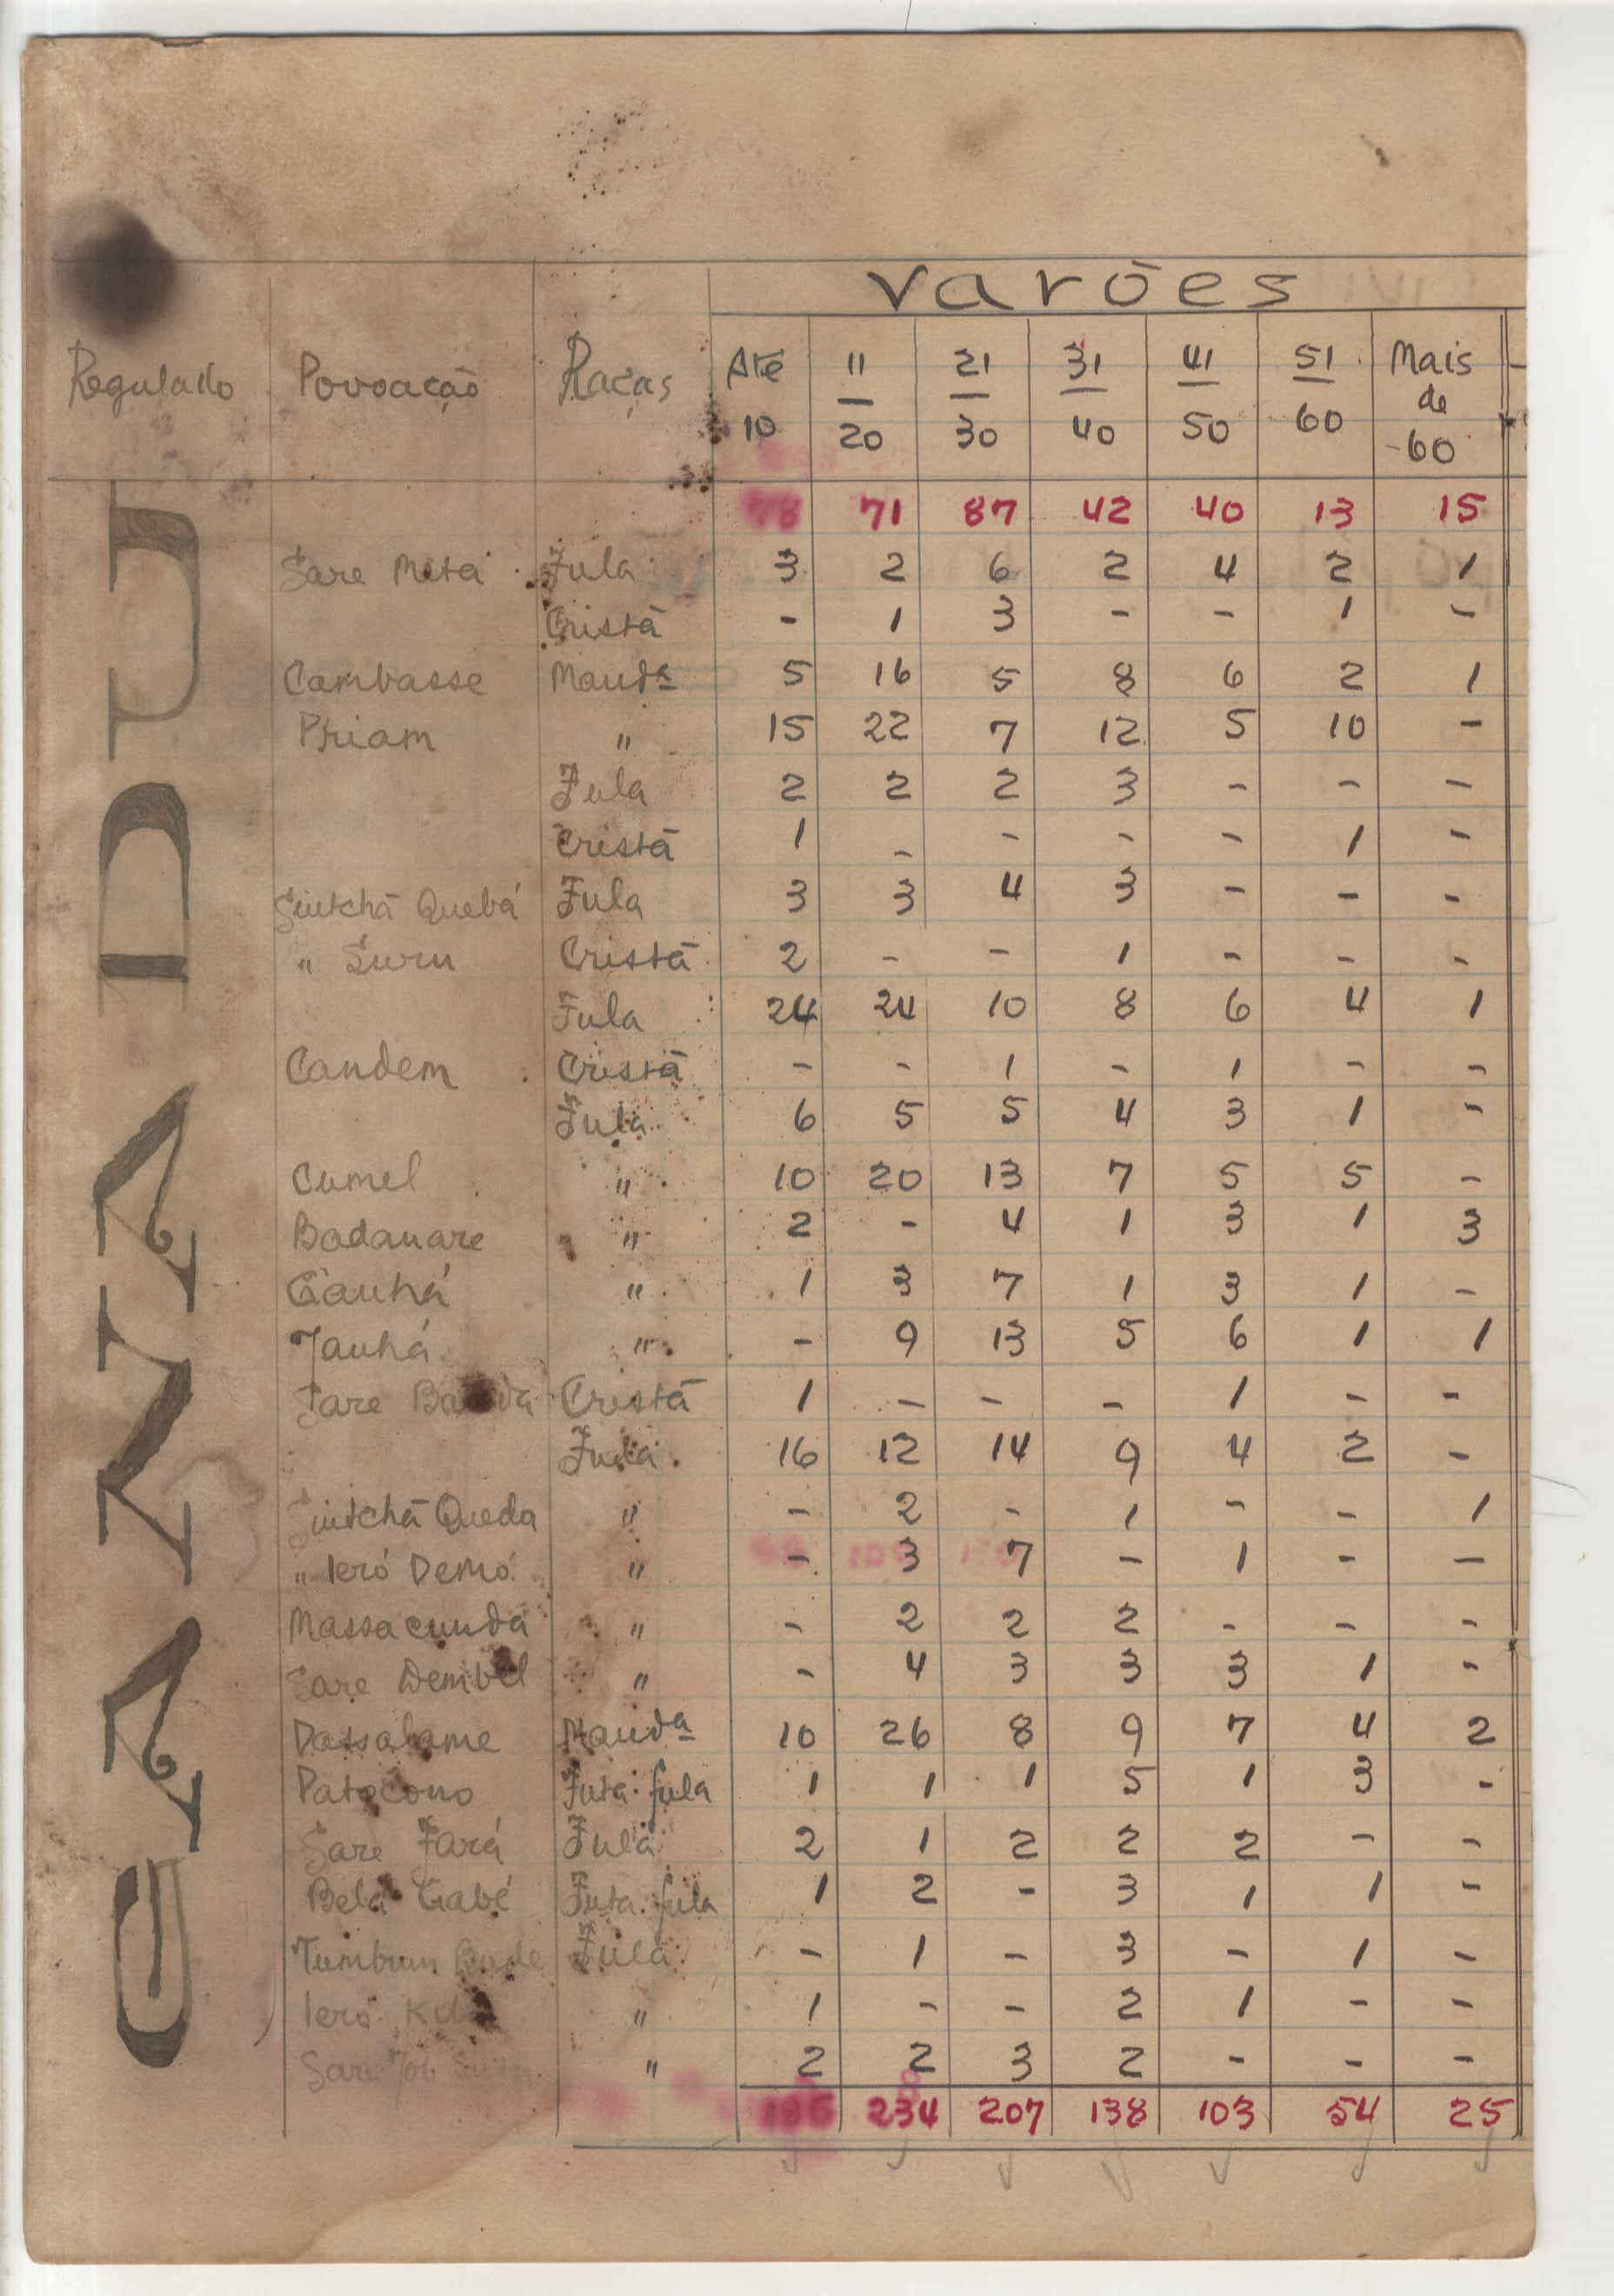 varões
Regulado Povoação Raças Até 10 11 20 21 30 31 40 41 50 51 60 Mais de 60
GANADU
78 71 87 42 40 13 15
Sare Meta Fula 3 2 6 2 4 2 1
Cristã - 1 3 - - 1 -
Cambasse Mandª 5 16 5 8 6 2 1
Priam " 15 22 7 12 5 10 -
Fula 2 2 2 3 - - -
Cristã 1 - - - - 1 -
Sintchã Quebá Fula 3 3 4 3 - - -
" Suru Cristã 2 - - 1 - - -
Fula 24 24 10 8 6 4 1
Candem Cristã - - 1 - 1 - -
Fula 6 5 5 4 3 1 -
Cumel " 10 20 13 7 5 5 -
Badanare " 2 - 4 1 3 1 3
Ganhá " 1 3 7 1 3 1 -
Janhá " - 9 13 5 6 1 1
Sare Cristã 1 - - - 1 - -
Fula 16 12 14 9 4 2 -
Sintchã Queda " - 2 - 1 - - 1
" Ieró Demó " - 3 7 - 1 - -
Massacunda " - 2 2 2 - - -
Sare Dembel " - 4 3 3 3 1 -
Dassalame Mandª 10 26 8 9 7 4 2
Patocono Futa-fula 1 1 1 5 1 3 -
Sare Fará Fula 2 1 2 2 2 - -
Bela Gabé Futa-fula 1 2 - 3 1 1 -
Tumbum Fula - 1 - 3 - 1 -
Ieró " 1 - - 2 1 - -
Sare " 2 2 3 2 - - -
186 234 207 138 103 54 25